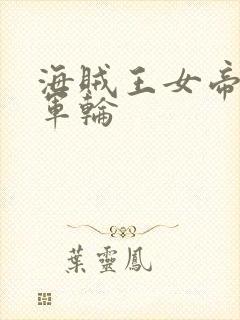 海賊王女帝
軍輪
葉靈鳳